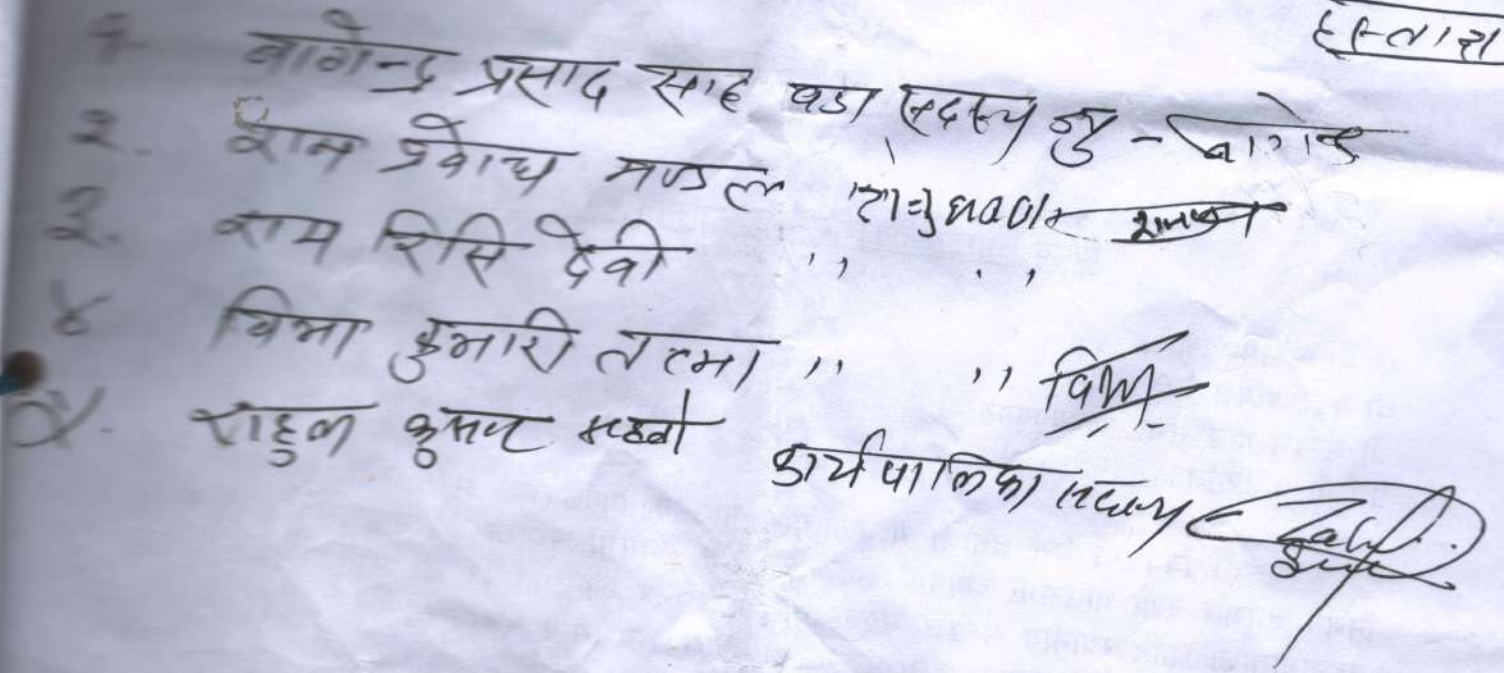 हस्ताक्ष
१- नागेन्द्र प्रसाद साह वडा सदस्य
२. राम प्रवोध मण्डल
३. राम रिसि देवी ,, ,,
४ विभा कुमारी तत्मा ,, ,, विभा
५. राहुल कुमार महतो
कार्यपालिका सदस्य